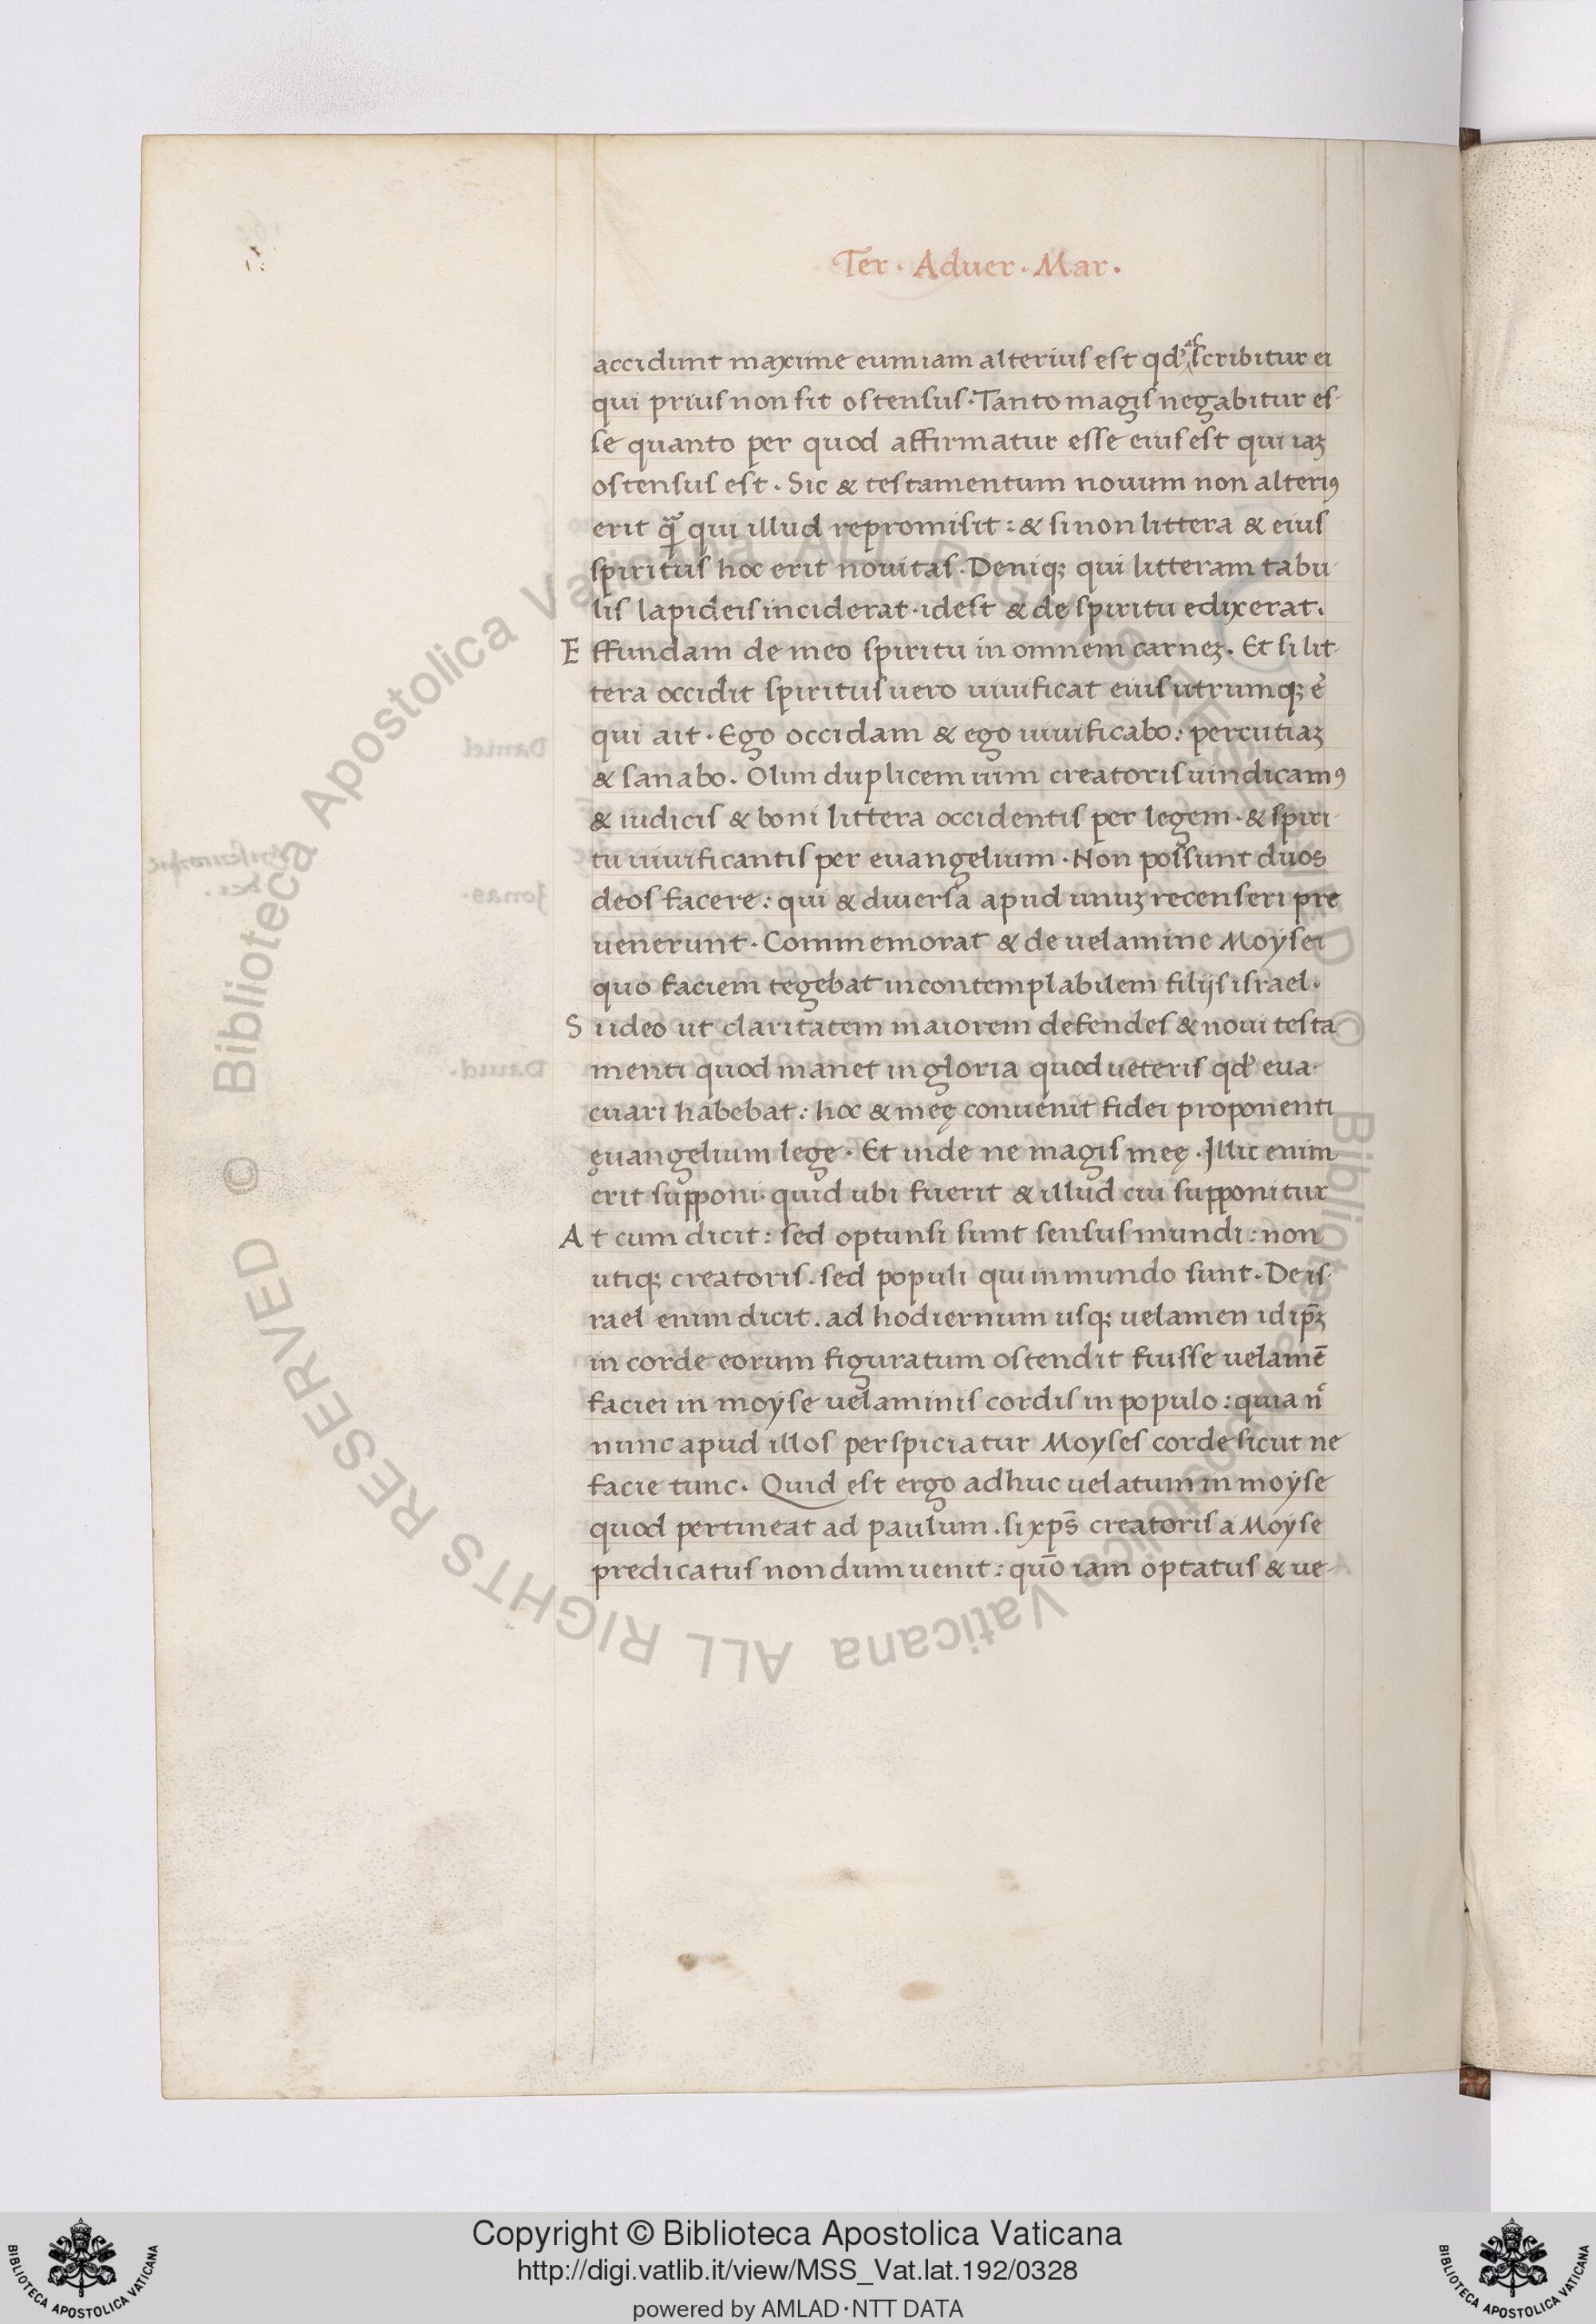 Ter · Aduer · Mar ·
accidunt maxime cum iam alterius est qd' ascribitur ei
qui prius non sit ostensus · Tanto magis negabitur es-
se quanto per quod affirmatur esse eius est qui iaꝫ
ostensus est · Sic & testamentum nouum non alteriꝰ
erit ꝙ̃ qui illud repromisit : & si non littera & eius
spiritus hoc erit nouitas · Deniqꝫ qui litteram tabu-
lis lapideis inciderat · idest & de spiritu edixerat ·
Effundam de meo spiritu in omnem carneꝫ · Et si lit-
tera occidit spiritus uero uiuificat eius utrumqꝫ ē
qui ait · Ego occidam & ego uiuificabo : percutiaꝫ
& sanabo · Olim duplicem uim creatoris uindicamꝰ
& iudicis & boni littera occidentis per legem · & spiri-
tu uiuificantis per euangelium · Non possunt duos
deos facere : qui & diuersa apud unuꝫ recenseri pre
uenerunt · Commemorat & de uelamine Moysei
quo faciem tegebat incontemplabilem filijs israel ·
S iideo ut claritatem maiorem defendes & noui testa
menti quod manet in gloria quod ueteris qd' eua-
cuari habebat : hoc & meę conuenit fidei proponenti
ęuangelium lege · Et uide ne magis meę · Illic enim
erit supponi · quid ubi fuerit & illud cui supponitur
At cum dicit : sed optunsi sunt sensus mundi : non
utiqꝫ creatoris · sed populi qui in mundo sunt · De is-
rael enim dicit · ad hodiernum usqꝫ uelamen id ip̄ꝫ
in corde eorum figuratum ostendit fuisse uelamē
faciei in moyse uelaminis cordis in populo : quia n̄
nunc apud illos perspiciatur Moyses corde sicut ne
facie tunc · Quid est ergo adhuc uelatum in moyse
quod pertineat ad paulum · si xp̄s creatoris a Moyse
predicatus nondum uenit : quō iam optatus & ue-
Daniel
Jonas ·
Dauid ·
© Biblioteca Apostolica Vaticana ALL RIGHTS RESERVED © Biblioteca Apostolica Vaticana ALL RIGHTS RESERVED
Copyright © Biblioteca Apostolica Vaticana
http://digi.vatlib.it/view/MSS_Vat.lat.192/0328
powered by AMLAD·NTT DATA
BIBLIOTECA APOSTOLICA VATICANA
BIBLIOTECA APOSTOLICA VATICANA